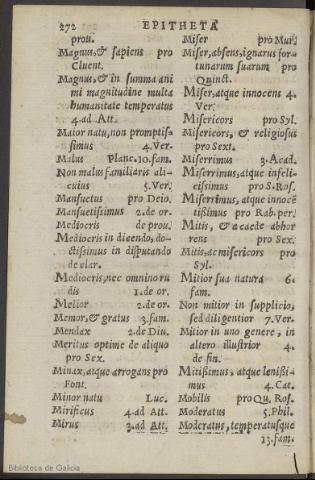 272 EPITHETA
prou.
Magnus, & sapiens pro
Cluent.
Magnus, & in summa ani
mi magnitudine multa
humanitate temperatus
4. ad Att.
Maior natu, non promptis-
simus 4. Ver.
Malus Planc. 10. fam.
Non malus familiaris ali-
cuius 5. Ver.
Mansuetus pro Deio.
Mansuetissimus 2. de or.
Mediocris de prou.
Mediocris in dicendo, do-
ctissimus in disputando
de clar.
Mediocris, nec omnino ru
dis 1. de or.
Melior 2. de or.
Memor, & gratus 3. fam.
Mendax 2. de Diu.
Meritus optime de aliquo
pro Sex.
Minax, atque arrogans pro
Font.
Minor natu Luc.
Mirificus 4. ad Att.
Mirus 3. ad Att.
Miser pro Mur.
Miser, absens, ignarus for-
tunarum suarum pro
Quinct.
Miser, atque innocens 4.
Ver.
Misericors pro Syl.
Misericors, & religiosus
pro Sext.
Miserrimus 3. Acad.
Miserrimus, atque infeli-
cissimus pro S. Ros.
Miserrimus, atque innocē
tissimus pro Rab. per.
Mitis, & a caede abhor
rens pro Sex.
Mitis, ac misericors pro
Syl.
Mitior sua natura 6.
fam.
Non mitior in supplicio,
sed diligentior 7. Ver.
Mitior in uno genere, in
altero illustrior 4.
de fin.
Mitissimus, atque lenissi-
mus 4. Cat.
Mobilis pro Qu. Ros.
Moderatus 5. Phil.
Moderatus, temperatusque
13. fam.
Biblioteca de Galicia